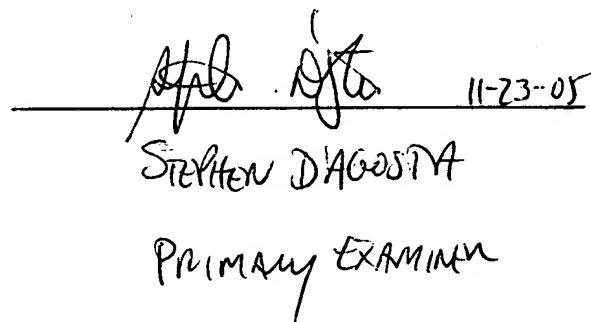 11-23-05
STEPHEN D'AGOSTA
PRIMARY EXAMINER